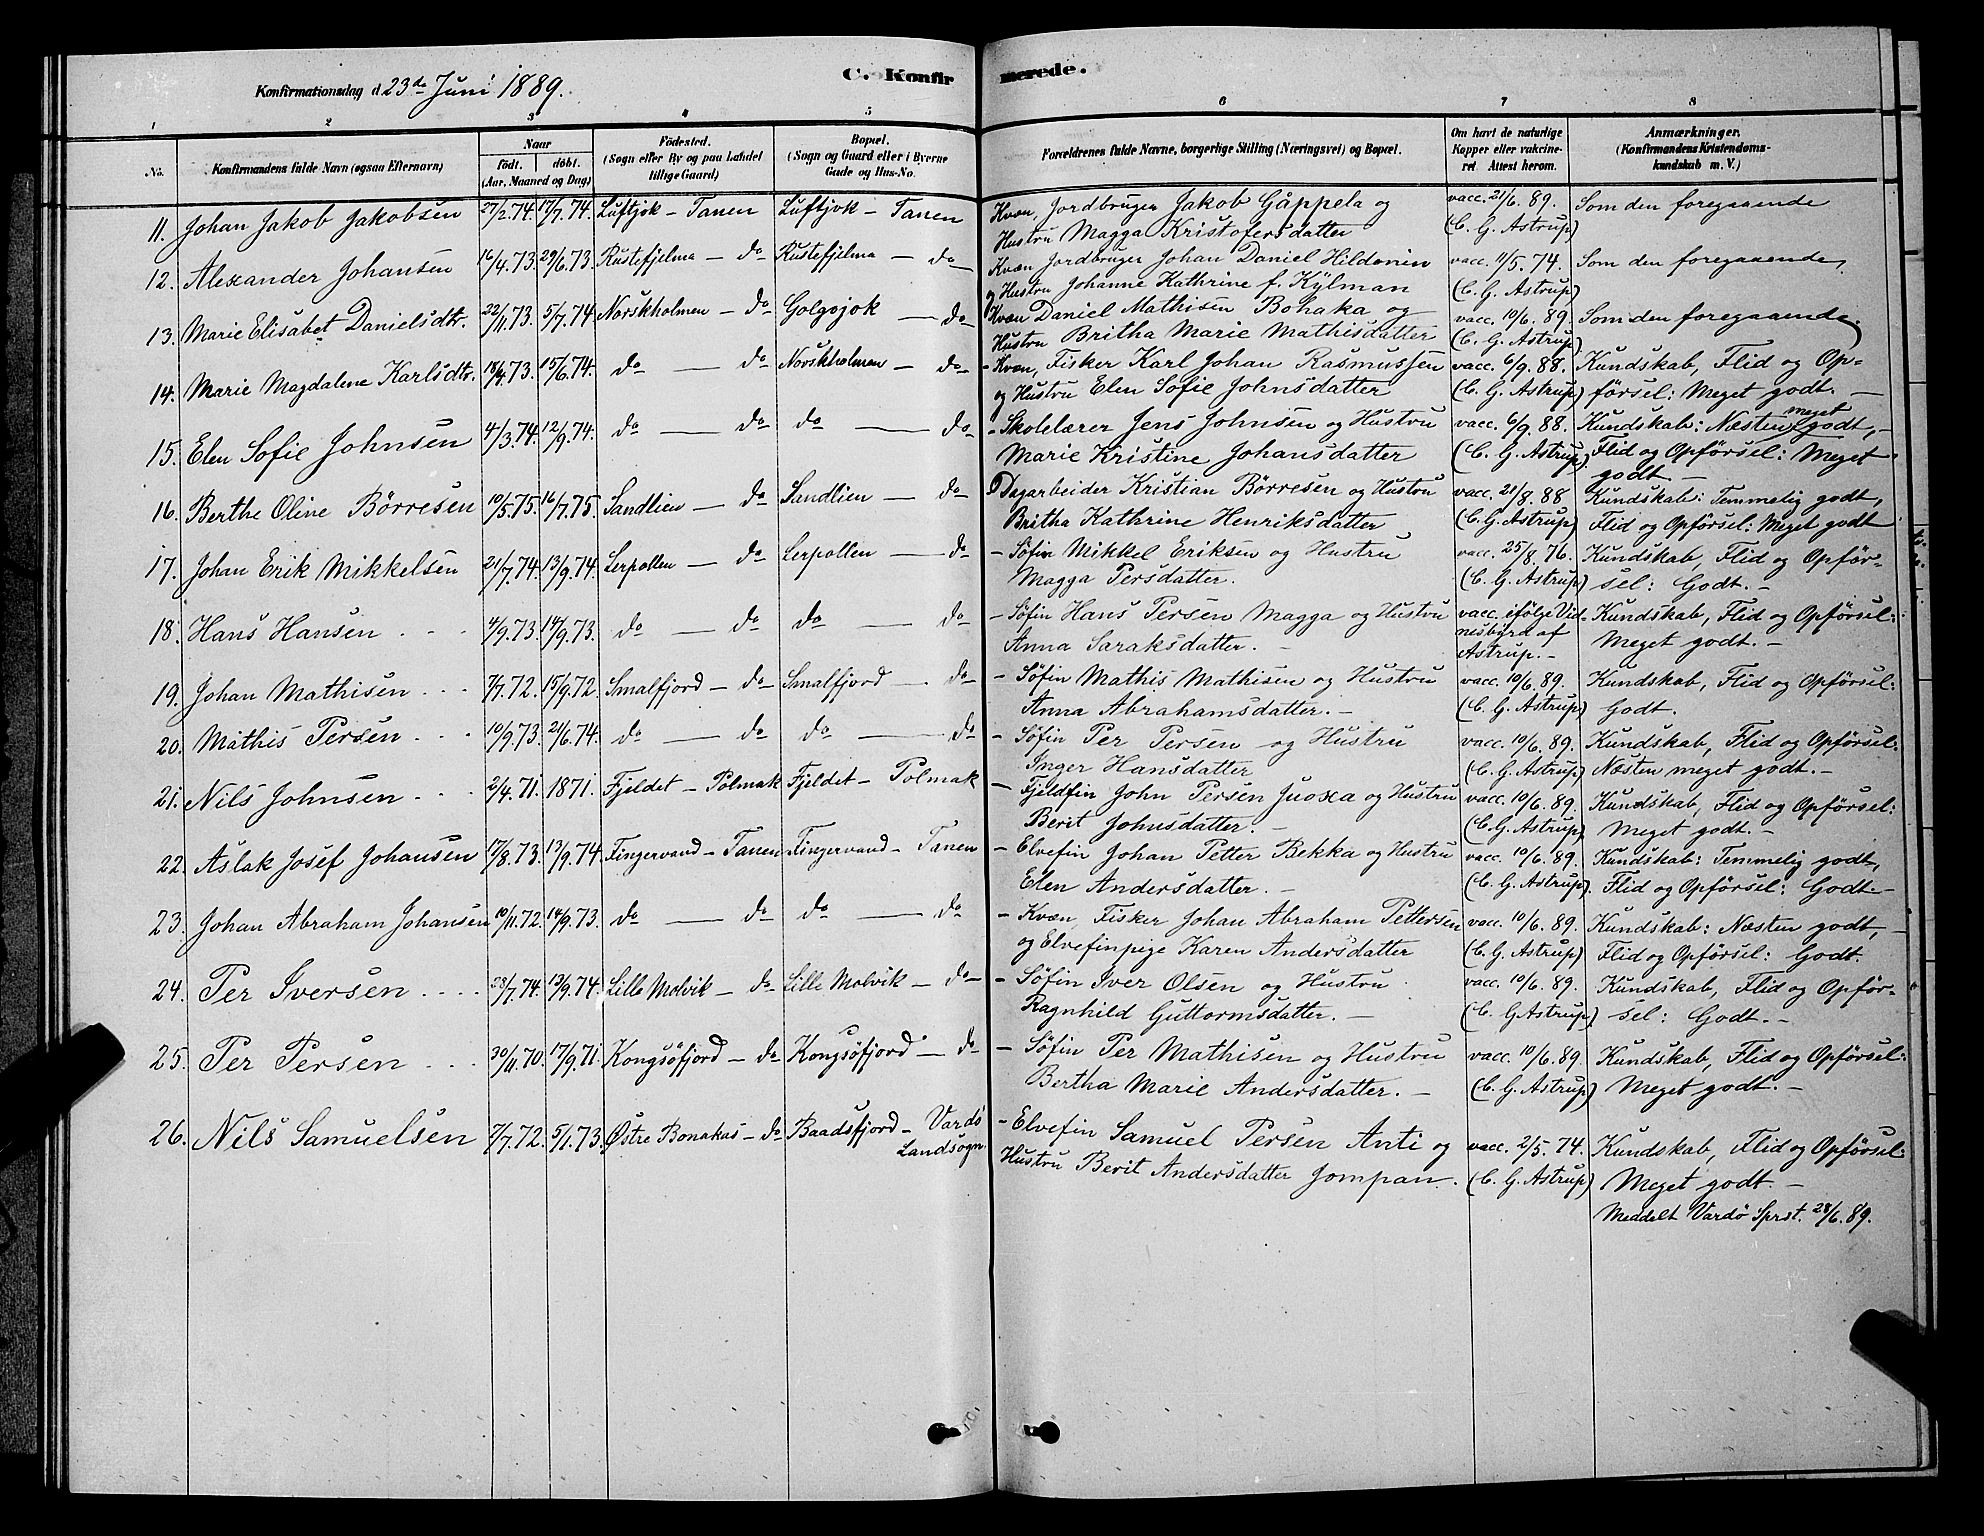 C. Konfirmerede.
Konfirmationsdag d. 23de Juni 1889.
1 2 3 4 5 6 7 8
No. Konfirmandens fulde Navn (ogsaa Efternavn) Naar födt. döbt. (Aar, Maaned og Dag) Födested. (Sogn eller By og paa Landet tillige Gaard) Bopæl. (Sogn og Gaard eller i Byerne Gade og Hus-No. Forældrenes fulde Navne, borgerlige Stilling (Næringsvei) og Bopæl. Om havt de naturlige Kopper eller vakcineret Attest herom. Anmærkninger. (Konfirmandens Kristendomskundskab m. V.)
11. Johan Jakob Jakobsen 27/2.74. 17/7.74. Luftjok – Tanen Luftjok – Tanen Kvæn, Jordbruger Jakob Gåppela og vacc. 21/6.89. Som den foregaaende
Hustru Magga Kristofersdatter (C. G. Astrup)
12. Alexander Johansen 16/4.73. 29/6.73. Rustefjelma – do Rustefjelma – do Kvæn Jordbruger Johan Daniel Hildonin vacc. 11/5.74. Som den foregaaende,
og Hustru Johanne Kathrine f. Kÿlman (C. G. Astrup)
13. Marie Elisabet Danielsdtr. 22/11.73. 5/7.74 Norskholmen – do Golgojok – do Kvæn Daniel Mathisen Bohaka og vacc. 10/6.89. Som den foregaaende.
Hustru Britha Marie Mathisdatter (C. G. Astrup)
14. Marie Magdalene Karlsdtr. 18/9.73. 15/6.74. do – do Norskholmen – do – Kvæn, Fisker Karl Johan Rasmussen vacc. 6/9.88. Kundskab, Flid og Op-
og Hustru Elen Sofie Johnsdatter (C. G. Astrup) førsel: Meget godt. –
15. Elen Sofie Johnsen 4/3.74. 12/9.74. do – do do – do – Skolelærer Jens Johnsen og Hustru vacc. 6/9.88. Kundskab: Næsten meget godt, –
Marie Kristine Johansdatter (C. G. Astrup) Flid og Opførsel: Meget
godt –
16. Berthe Oline Børresen 10/5.75. 16/7.75. Sandlien – do Sandlien – do Dagarbeider Kristian Børresen og Hustru vacc. 21/8.88 Kundskab: Temmelig godt,
Britha Kathrine Henriksdatter (C. G. Astrup) Flid og Opførsel: Meget godt
17. Johan Erik Mikkelsen 21/7.74. 13/9.74. Lerpollen – do Lerpollen – do – Søfin Mikkel Eriksen og Hustru vacc. 25/8.76. Kundskab, Flid og Opfør-
Magga Persdatter. (C. G. Astrup) sel: Godt. –
18. Hans Hansen 4/9.73. 14/9.73. do – do do – do – Søfin Hans Persen Magga og Hustru vacc. ifølge Vid- Kundskab, Flid og Opførsel:
Anna Saraksdatter. – nesbyrd af Meget godt. –
Astrup. –
19. Johan Mathisen 7/7.72. 15/9.72 Smalfjord – do Smalfjord – do – Søfin Mathis Mathisen og Hustru vacc. 10/6.89. Kundskab, Flid og Opførsel:
Anna Abrahamsdatter. – (C. G. Astrup) Godt.
20. Mathis Persen 10/9.73. 21/6.74. do – do do – do – Søfin Per Persen og Hustru vacc. 10/6.89. Kundskab, Flid og Opførsel:
Inger Hansdatter (C. G. Astrup) Næsten meget godt. –
21. Nils Johnsen 2/4.71. 1871. Fjeldet – Polmak Fjeldet – Polmak – Fjeldfin John Persen Juoxa og Hustru vacc. 10/6.89. Kundskab, Flid og Opførsel:
Berit Johnsdatter. – (C. G. Astrup) Meget godt. –
22. Aslak Josef Johansen 17/8.73. 13/9.74. Fingervand – Tanen Fingervand – Tanen – Elvefin Johan Petter Bekka og Hustru vacc. 10/6.89. Kundskab: Temmelig godt,
Elen Andersdatter. – (C. G. Astrup). Flid og Opførsel: Godt –
23. Johan Abraham Johansen 10/11.72. 14/9.73. do – do do – do – Kvæn, Fisker Johan Abraham Pettersen vacc. 10/6.89. Kundskab: Næsten godt, –
og Elvefinpige Karen Andersdatter (C. G. Astrup) Flid og Opførsel: Godt.
24. Per Iversen 28/7.74. 13/9.74. Lille Molvik – do Lille Molvik – do – Søfin Iver Olsen og Hustru vacc. 10/6.89. Kundskab, Flid og Opfør-
Ragnhild Guttormsdatter. – (C. G Astrup) sel: Godt. –
25. Per Persen 30/11.70. 17/9.71. Kongsöfjord – do Kongsöfjord – do – Søfin Per Mathisen og Hustru vacc. 10/6.89. Kundskab, Flid og Opførsel:
Bertha Marie Andersdatter. – (C. G. Astrup) Meget godt. –
26. Nils Samuelsen 7/7.72. 5/1.73. Østre Bonakas – do Baadsfjord – Vardö – Elvefin Samuel Persen Anti og vacc. 2/5.74. Kundskab, Flid og Opførsel:
Landsogn Hustru Berit Andersdatter Jompan. (C. G. Astrup) Meget godt. –
Meddelt Vardö Sprst. 28/6.89.